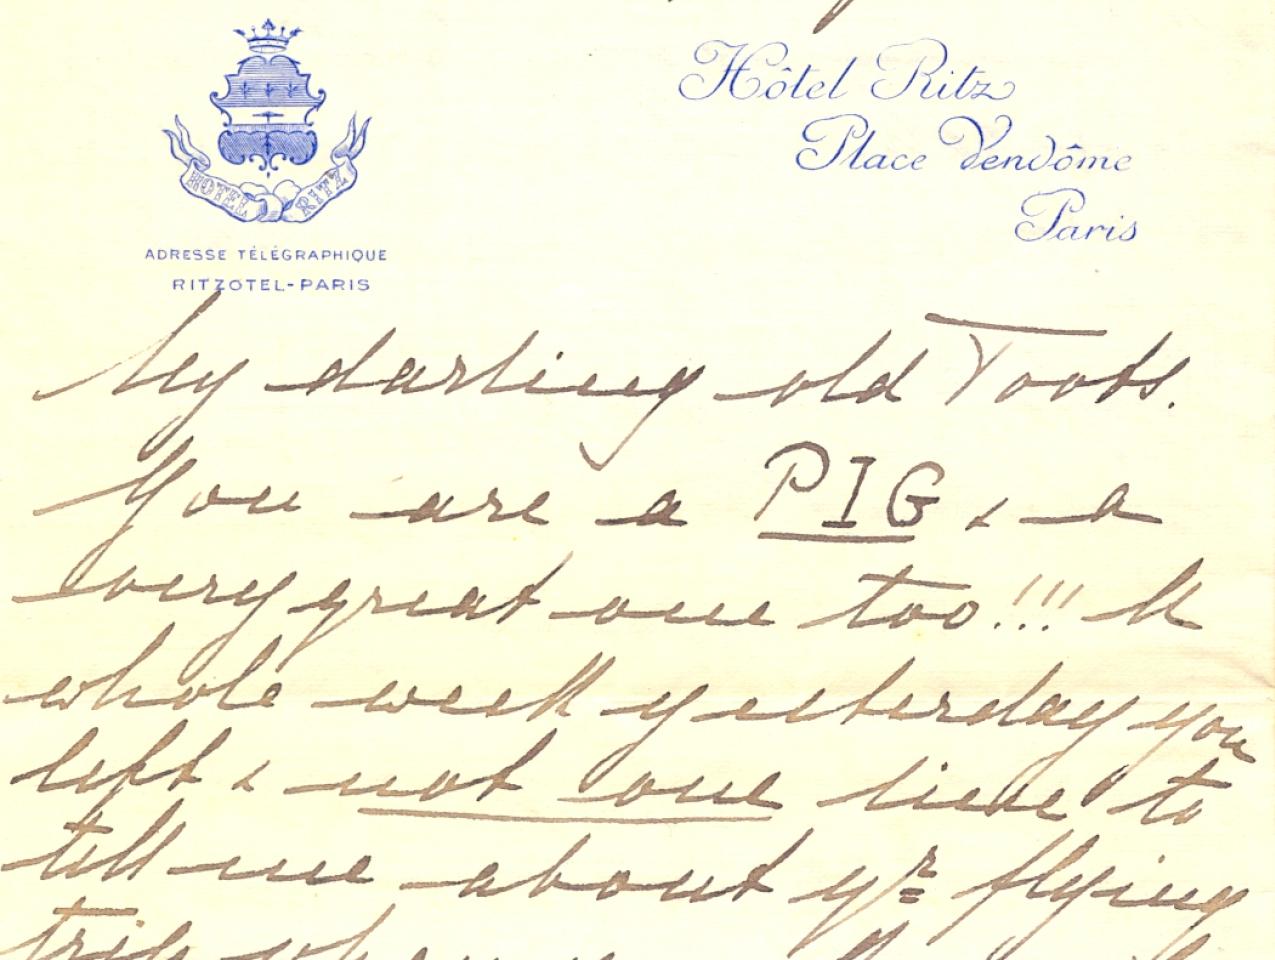 Hôtel Ritz
Place Vendôme
Paris
HOTEL RITZ
ADRESSE TÉLÉGRAPHIQUE
RITZOTEL-PARIS
My darling old Toots.
You are a PIG & a
very great one too!!! A
whole week yesterday you
left & not one line to
tell me about yr flying
trip